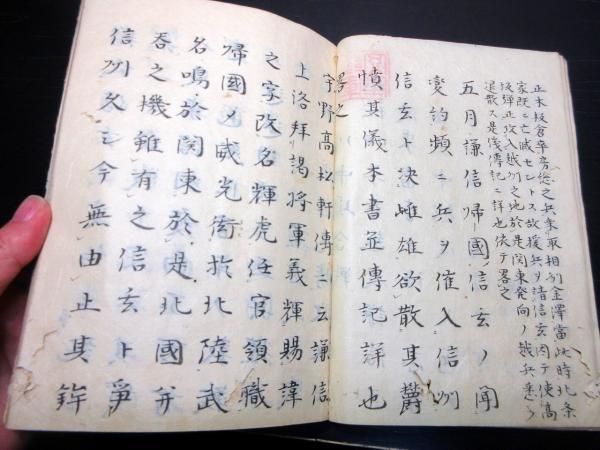 正木板倉卒旁怨之兵衆取相州金澤當此時北条
家既ニ亡滅セントス故援兵ヲ請信玄因テ使高
坂弾正攻入越州之地於是関東発向ノ越兵悉ク
退散ス是残傳記ニ詳也依テ畧之
五月謙信帰國信玄ノ聞
変約頻ニ兵ヲ催入信州
信玄ト决雌雄欲散其欝
憤其儀本書並傳記詳也
畧之
宇野高松軒傳ニ云謙信
上洛拜謁将軍義輝賜諱
之字改名輝虎任官領職
帰國〆威光衒於北陸武
名鳴於関東於是北國并
吞之機雖有之信玄ト爭
信州久乆今無由止其鉾